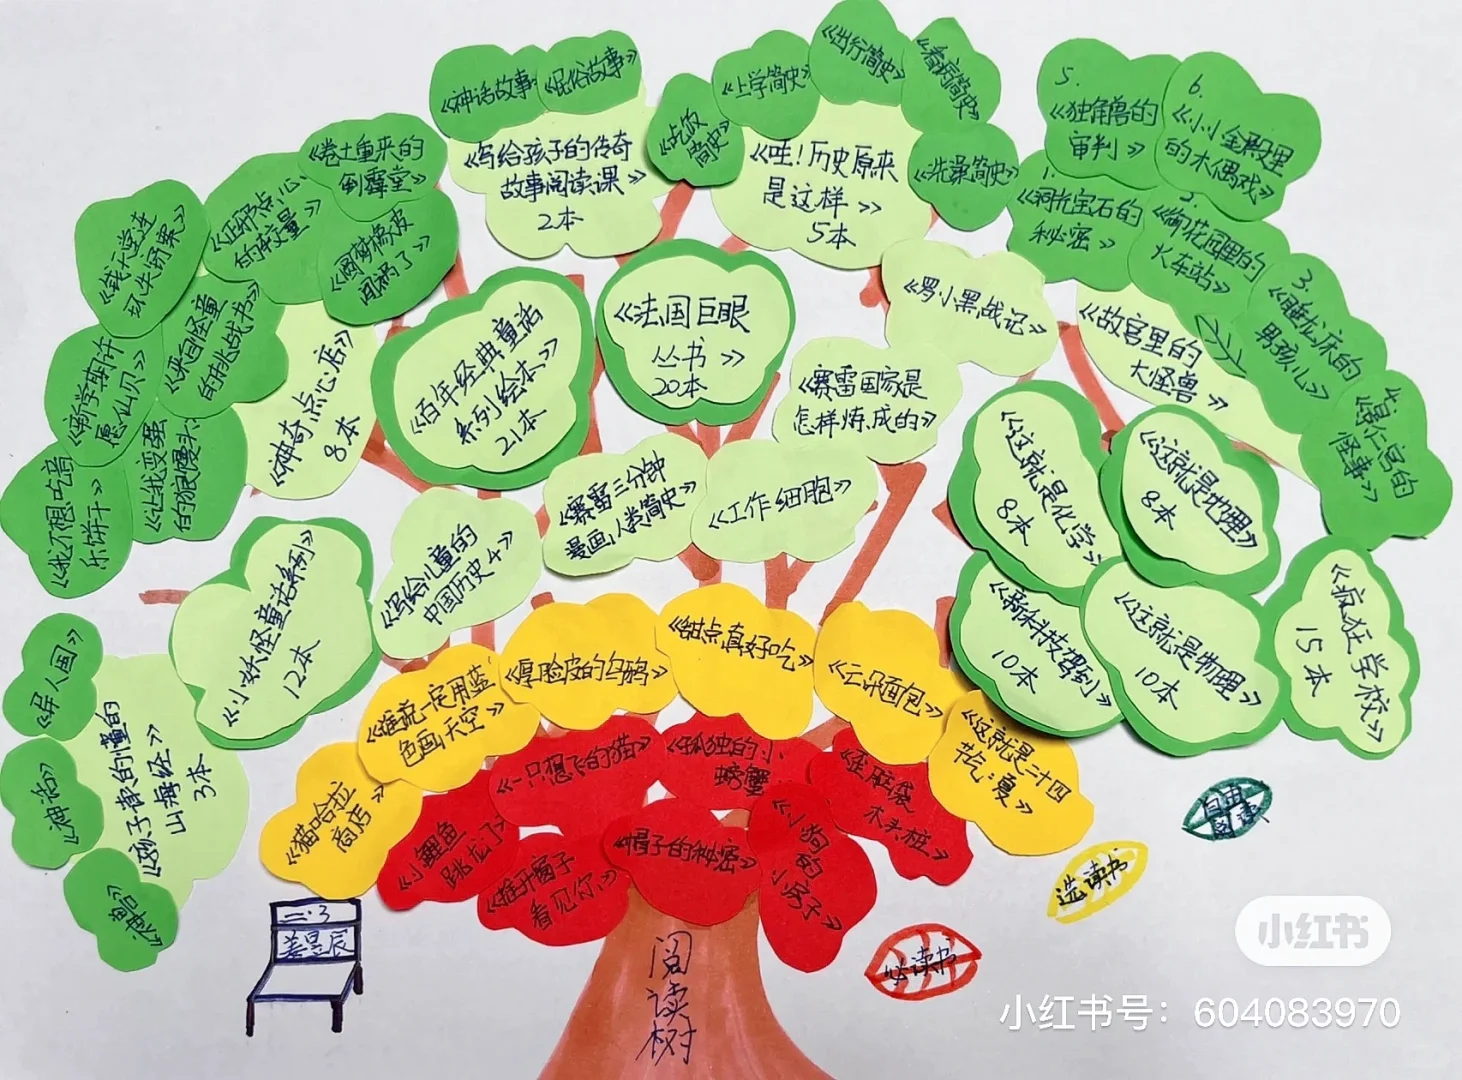 《神话故事》
《民俗故事》
《写给孩子的传奇
故事阅读课》
2本
《吃饭
简史》
《上学简史》
《出行简史》
《看病简史》
《洗澡简史》
《哇！历史原来
是这样》
5本
5.
《独角兽的
审判》
6.
《小小金殿里
的木偶戏》
1.
《洞光宝石的
秘密》
2.
《御花园里的
火车站》
3.
《睡龙床的
男孩儿》
《景仁宫的
怪事》
《故宫里的
大怪兽》
《卷土重来的
倒霉堂》
《正邪点心
的较量》
《闯祸橡皮
闯祸了》
《钱天堂进
坏牛奶案》
《来自怪童
的挑战书》
《新学期许
愿仙贝》
《让我变强
的狼馒头》
《我不想吃音
乐饼干》
《神奇点心店》
8本
《百年经典童话
系列绘本》
21本
《法国巨眼
丛书》
20本
《罗小黑战记》
《赛雷国家是
怎样炼成的》
《赛雷三分钟
漫画人类简史》
《工作细胞》
《写给儿童的
中国历史4》
《小妖怪童话系列》
12本
《这就是化学》
8本
《这就是地理》
8本
《新科技驾到》
10本
《这就是物理》
10本
《疯狂学校》
15本
《异人国》
《神话》
《孩子读的懂的
山海经》
3本
《猫哈拉
商店》
《谁说一定用蓝
色画天空》
《厚脸皮的乌鸦》
《甜点真好吃》
《云朵面包》
《这就是二十四
节气：夏》
《小鲤鱼
跳龙门》
《一只想飞的猫》
《孤独的小
螃蟹》
《歪脑袋
木头桩》
《推开窗子
看见你》
《帽子的秘密》
《小狗的
小房子》
自由
阅读
选读书
必读书
二.3
姜昱辰
阅
读
树
小红书
小红书号：604083970